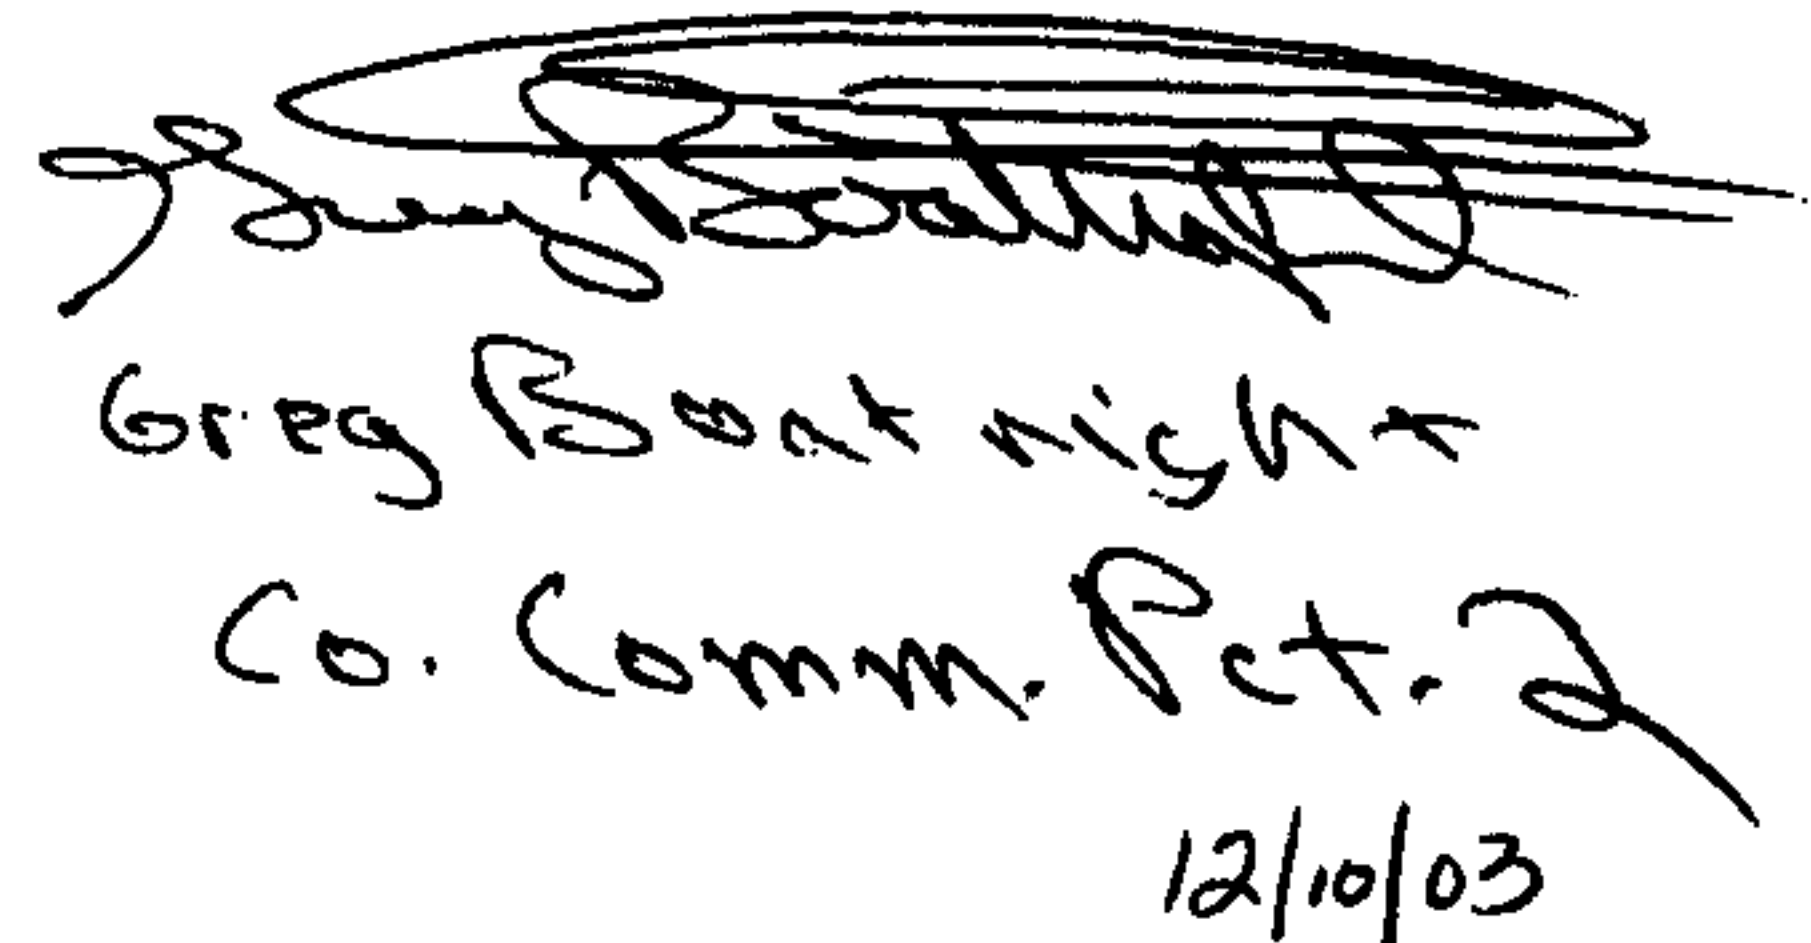 Greg Boatright
Greg Boatnight
Co. Comm. Pct. 2
12/10/03